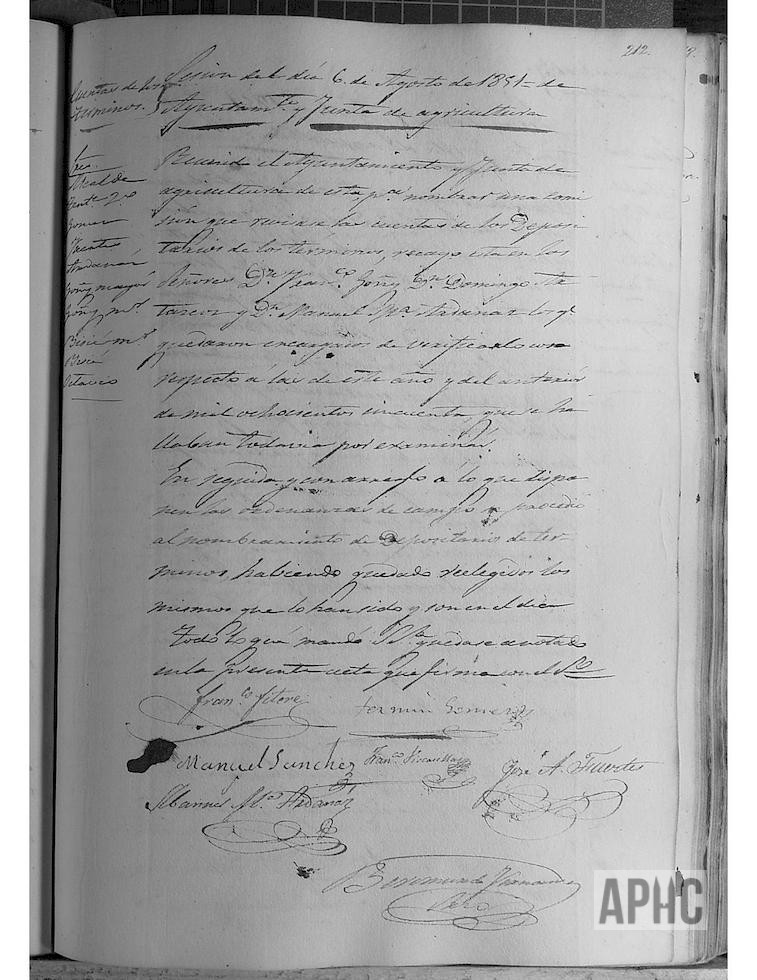 212.
Cuentas de los
terminos.
Sesion del dia 6 de Agosto de 1851 de
Ayuntam.to y Junta de agricultura
Sres
Alcalde
Tente 2.º
Gomez
Fuertes
Ardanaz
Goñy mayor
Goñy m.r
m.r
Octavio
Reunido el Ayuntamiento y Junta de
agricultura de esta, p.a nombrar una comi
sion que revisase las cuentas de los Deposi
tarios de los terminos, recayo esta en los
Señores D.n Fran.co Goñy D.n Domingo
y D.n Manuel M.a Ardanaz los q.e
quedaron encargados de verificarlo con
respecto á las de este año y del anterior
de mil ochocientos cincuenta, que se ha
llaban todavia por examinar.
En seguida y con arreglo a lo que dispo
nen las ordenanzas de campo se procedió
al nombramiento de Depositarios de ter
minos habiendo quedado reelegidos los
mismos que lo han sido y son en el dia
Todo lo que mandó S.S.a quedase anotado
en la presente acta que firma con el S.o
Fran.co
Fermin Gomez
Manuel Sanchez
Fran.co
José A. Fuertes
M.a Ardanaz
Beremundo
Srio
APHC